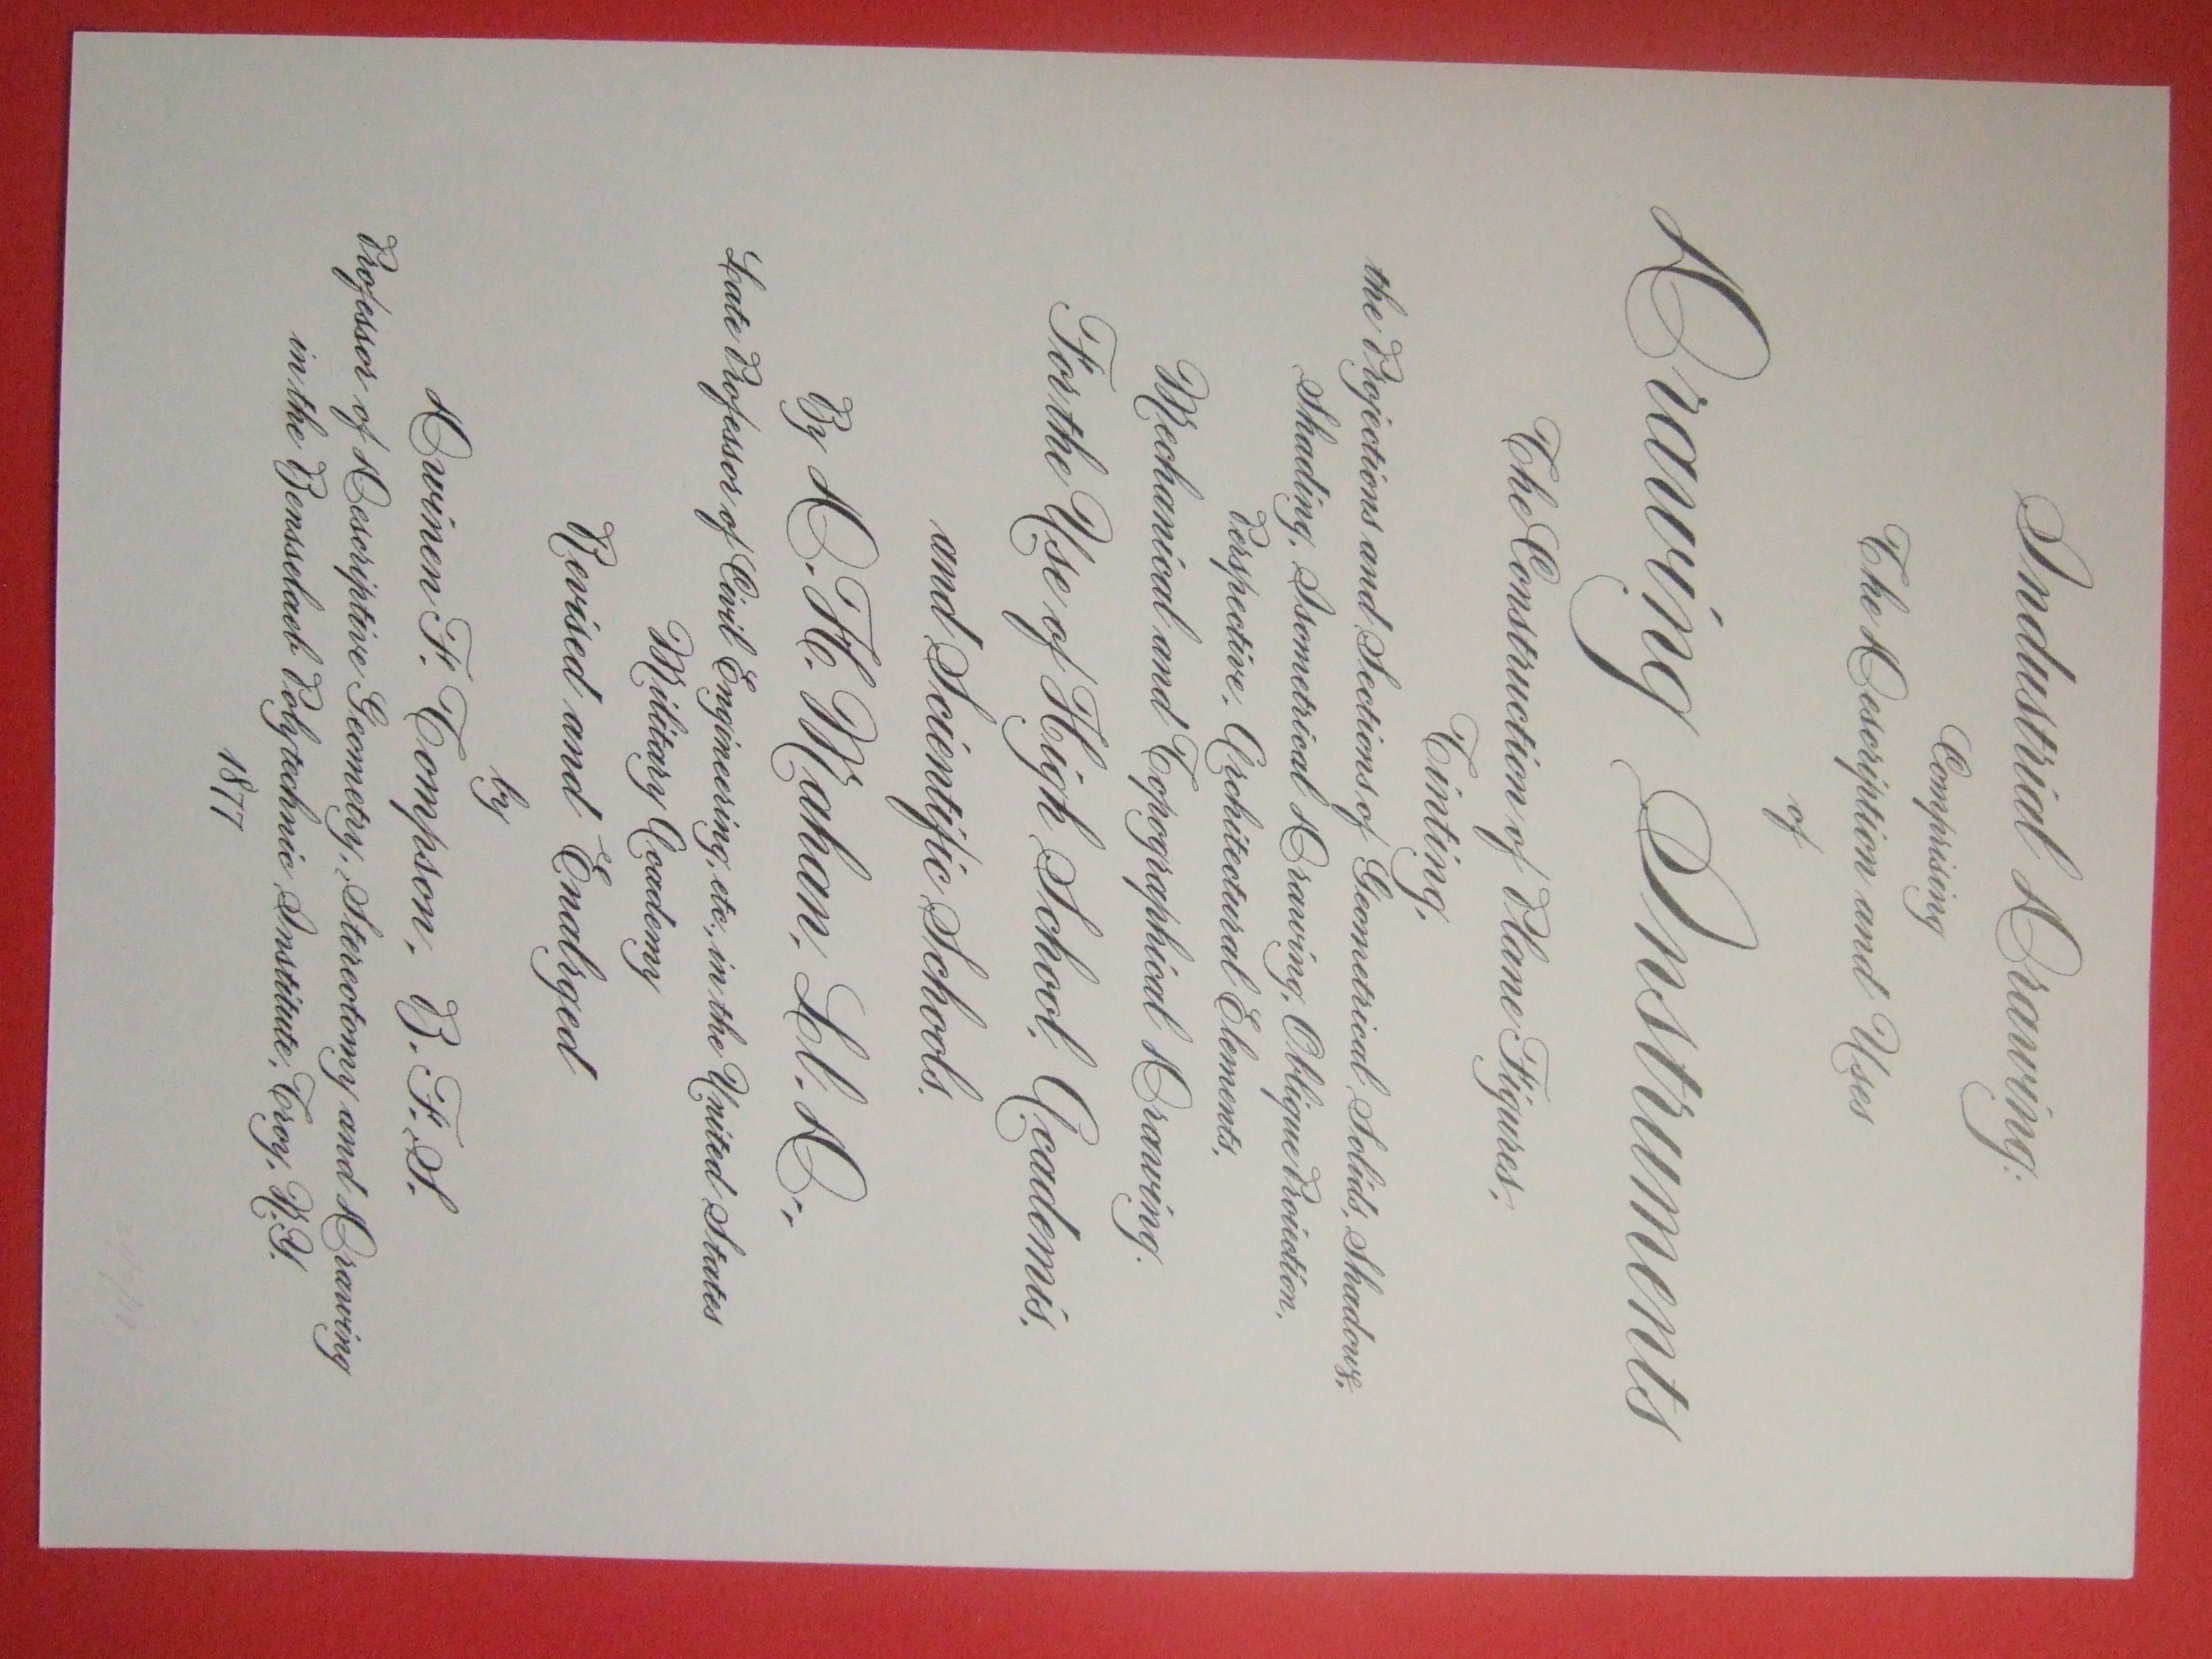 Industrial Drawing.
Comprising
The Description and Uses
of
Drawing Instruments
The Construction of Plane Figures,
Tinting,
the Projections and Sections of Geometrical Solids, Shadows,
Shading, Isometrical Drawing, Oblique Proiection,
Perspective, Architectural Elements,
Mechanical and Topographical Drawing.
For the Use of High School, Academis,
and Scientific Schools.
By D. H. Mahan, Ll. D.,
Late Professor of Civil Engineering, etc., in the United States
Military Academy
Revised and Enalrged
by
Dwinen F. Tompson, B. F. S.
Professor of Descriptive Geometry, Stereotomy and Drawing
in the Rensselaeb Polytechnic Institute, Troy, N.Y.
1877